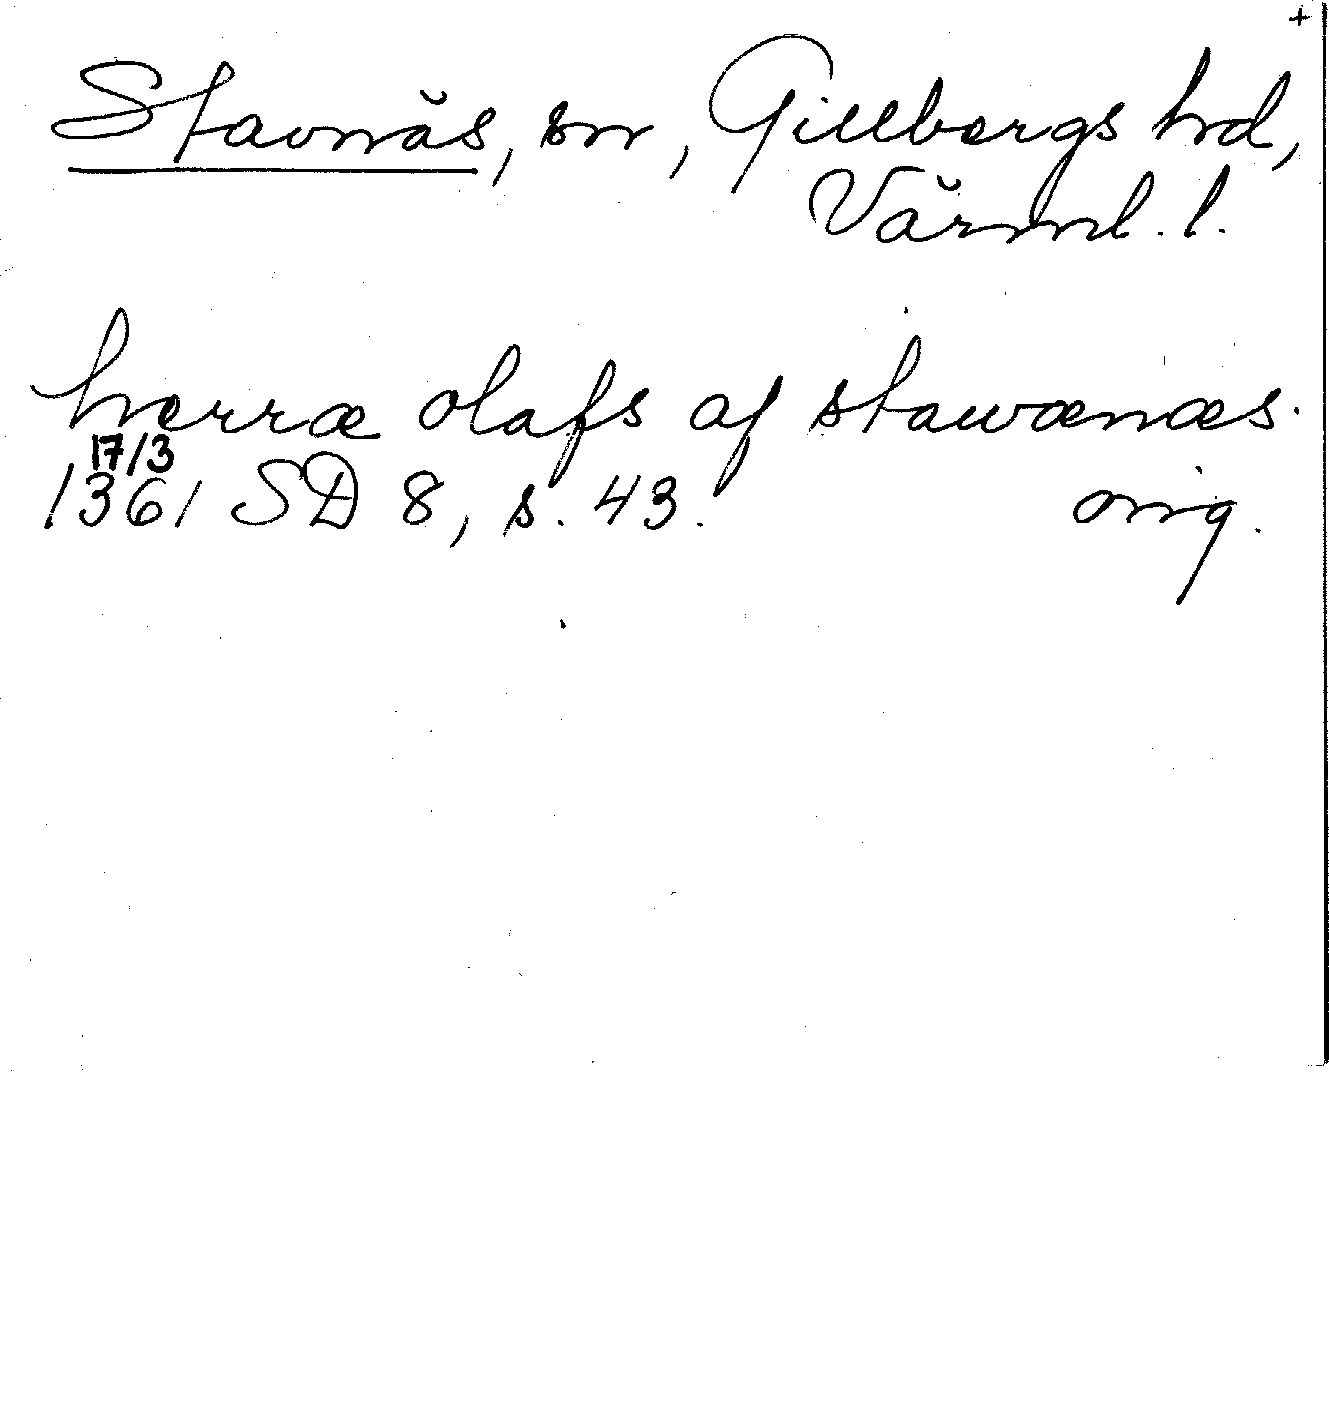 +
Stavnäs, sn, Gillbergs hd,
Värml. l.
herræ olafs af stawænæs.
17/3
1361 SD 8, s. 43. orig.